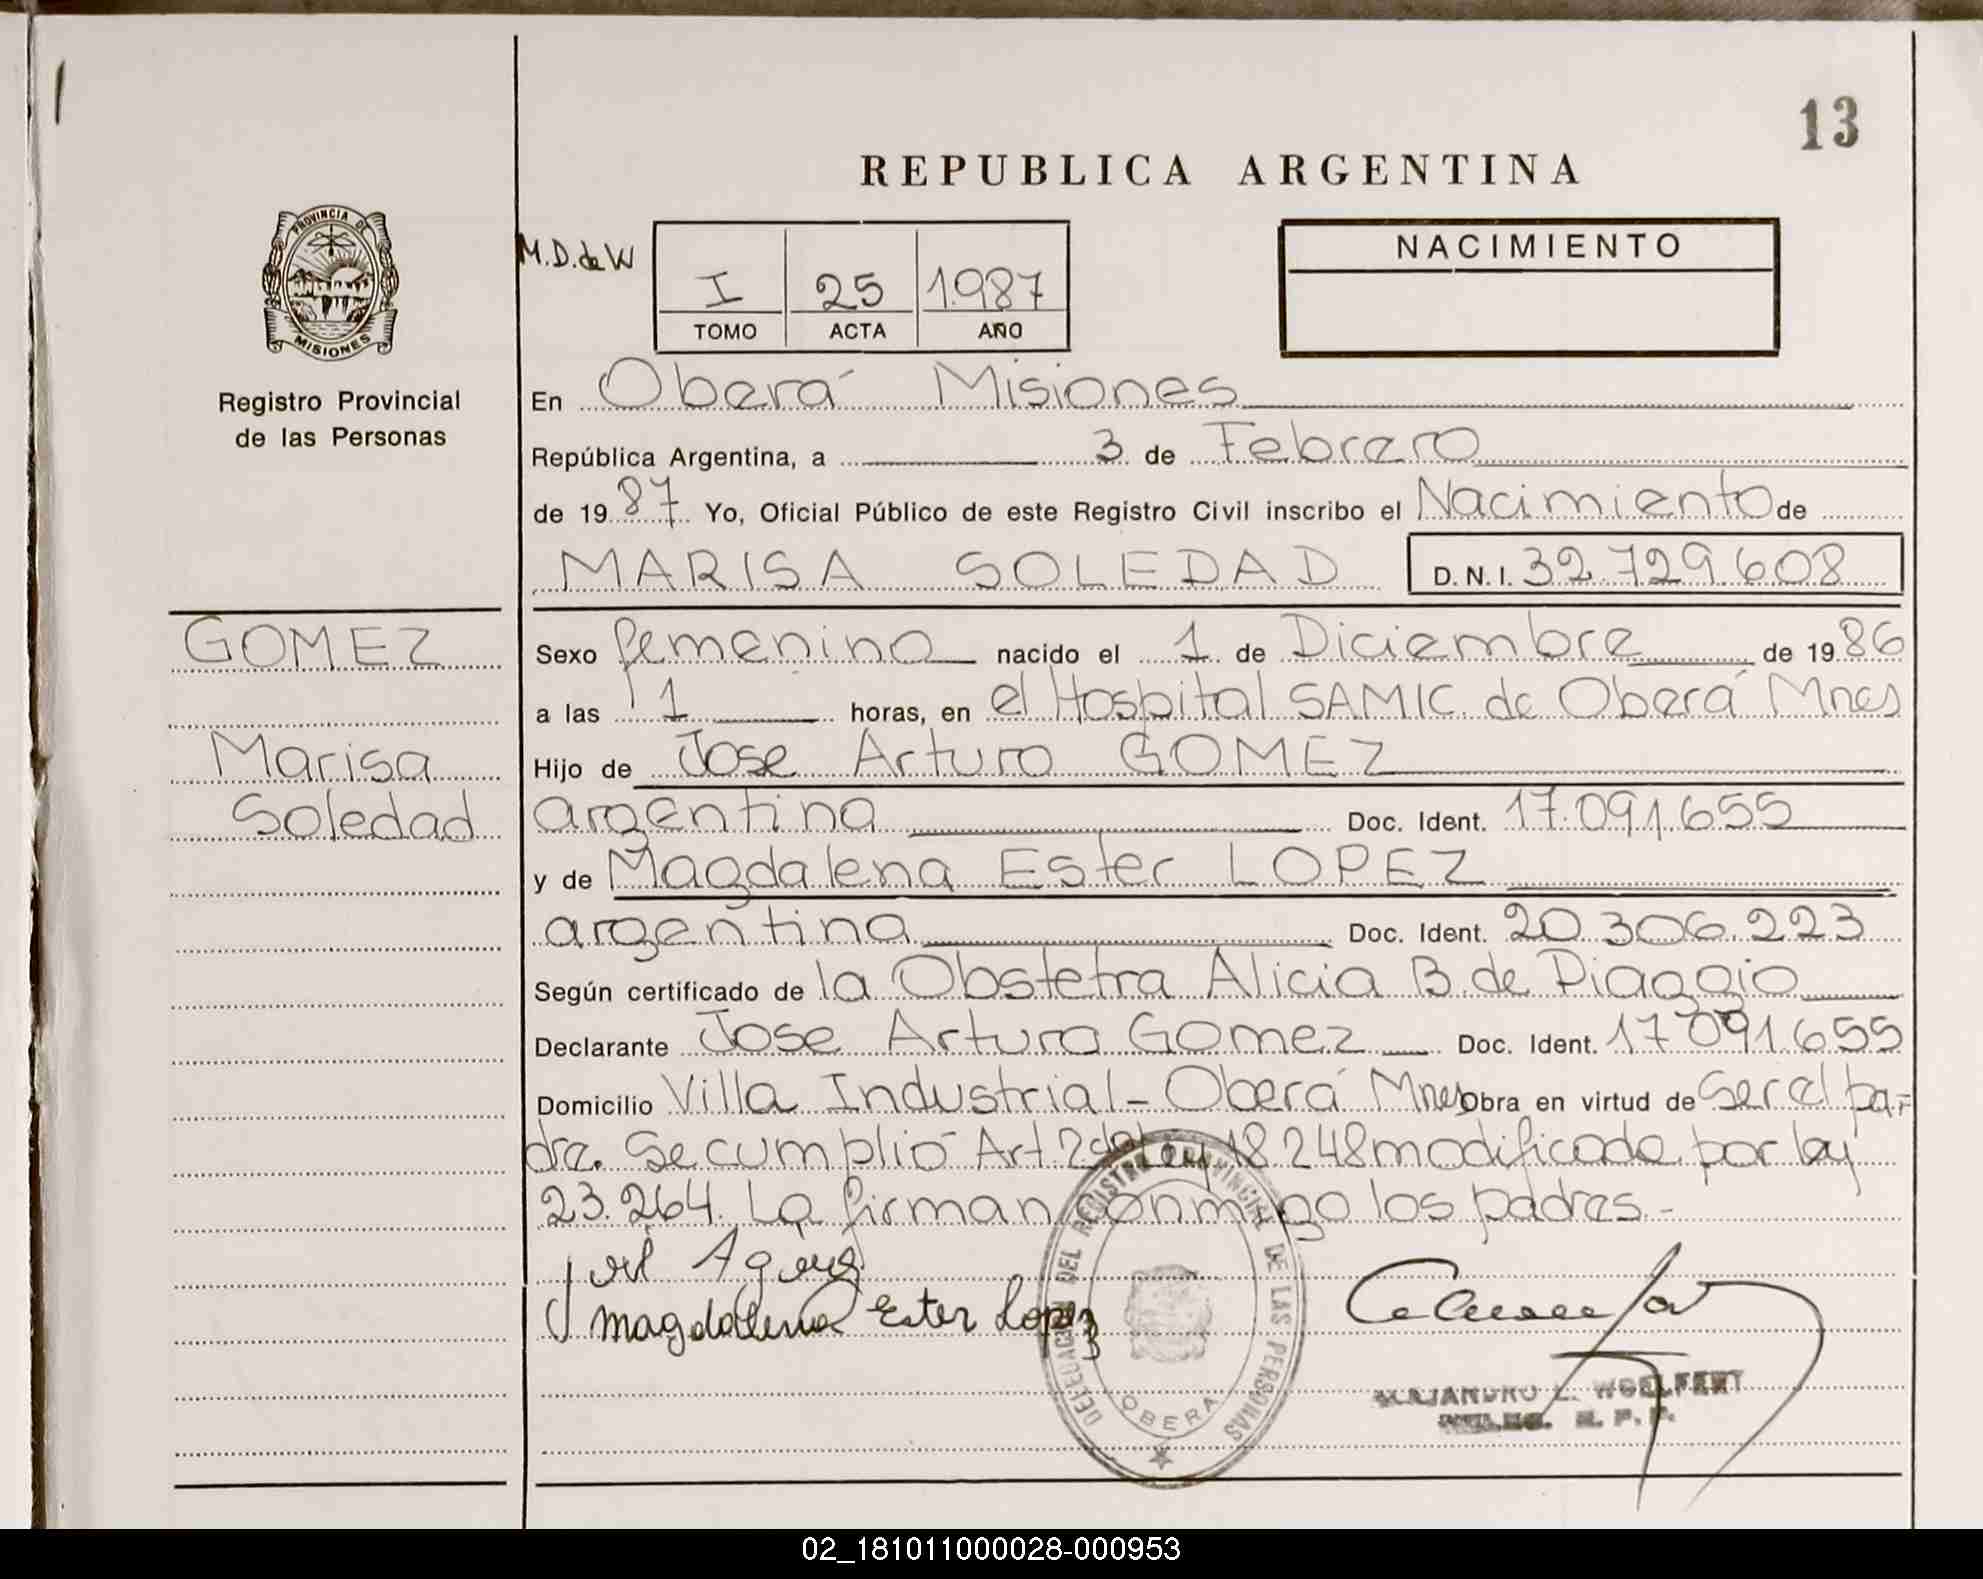 13
REPUBLICA ARGENTINA
PROVINCIA DE
MISIONES
Registro Provincial
de las Personas
M.D. de W
I 25 1.987
TOMO ACTA AÑO
NACIMIENTO
En Oberá Misiones
República Argentina, a 3 de Febrero
de 19 87 Yo, Oficial Público de este Registro Civil inscribo el Nacimiento de
MARISA SOLEDAD D.N.I. 32.729.608
GOMEZ
Marisa
Soledad
Sexo femenino nacido el 1 de Diciembre de 19 86
a las 1 horas, en el Hospital SAMIC de Oberá Mnes
Hijo de Jose Arturo GOMEZ
argentina Doc. Ident. 17.091.655
y de Magdalena Ester LOPEZ
argentina Doc. Ident. 20.306.223
Según certificado de la Obstetra Alicia B. de Piaggio
Declarante Jose Arturo Gomez Doc. Ident. 17 091.655
Domicilio Villa Industrial - Oberá Mnes Obra en virtud de ser el pa-
dre. Se cumplió Art. 2 del ley 18.248 modificada por ley
23.264. La firman conmigo los padres.-
magdalena Ester Lopez
DEL REGISTRO PROVINCIAL DE LAS PERSONAS
OBERA
ALEJANDRO L. WOELFERT
R. P. P.
02_181011000028-000953